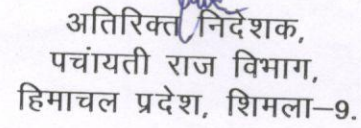 अतिरिक्त निदेशक,
पचांयती राज विभाग,
हिमाचल प्रदेश, शिमला–9.